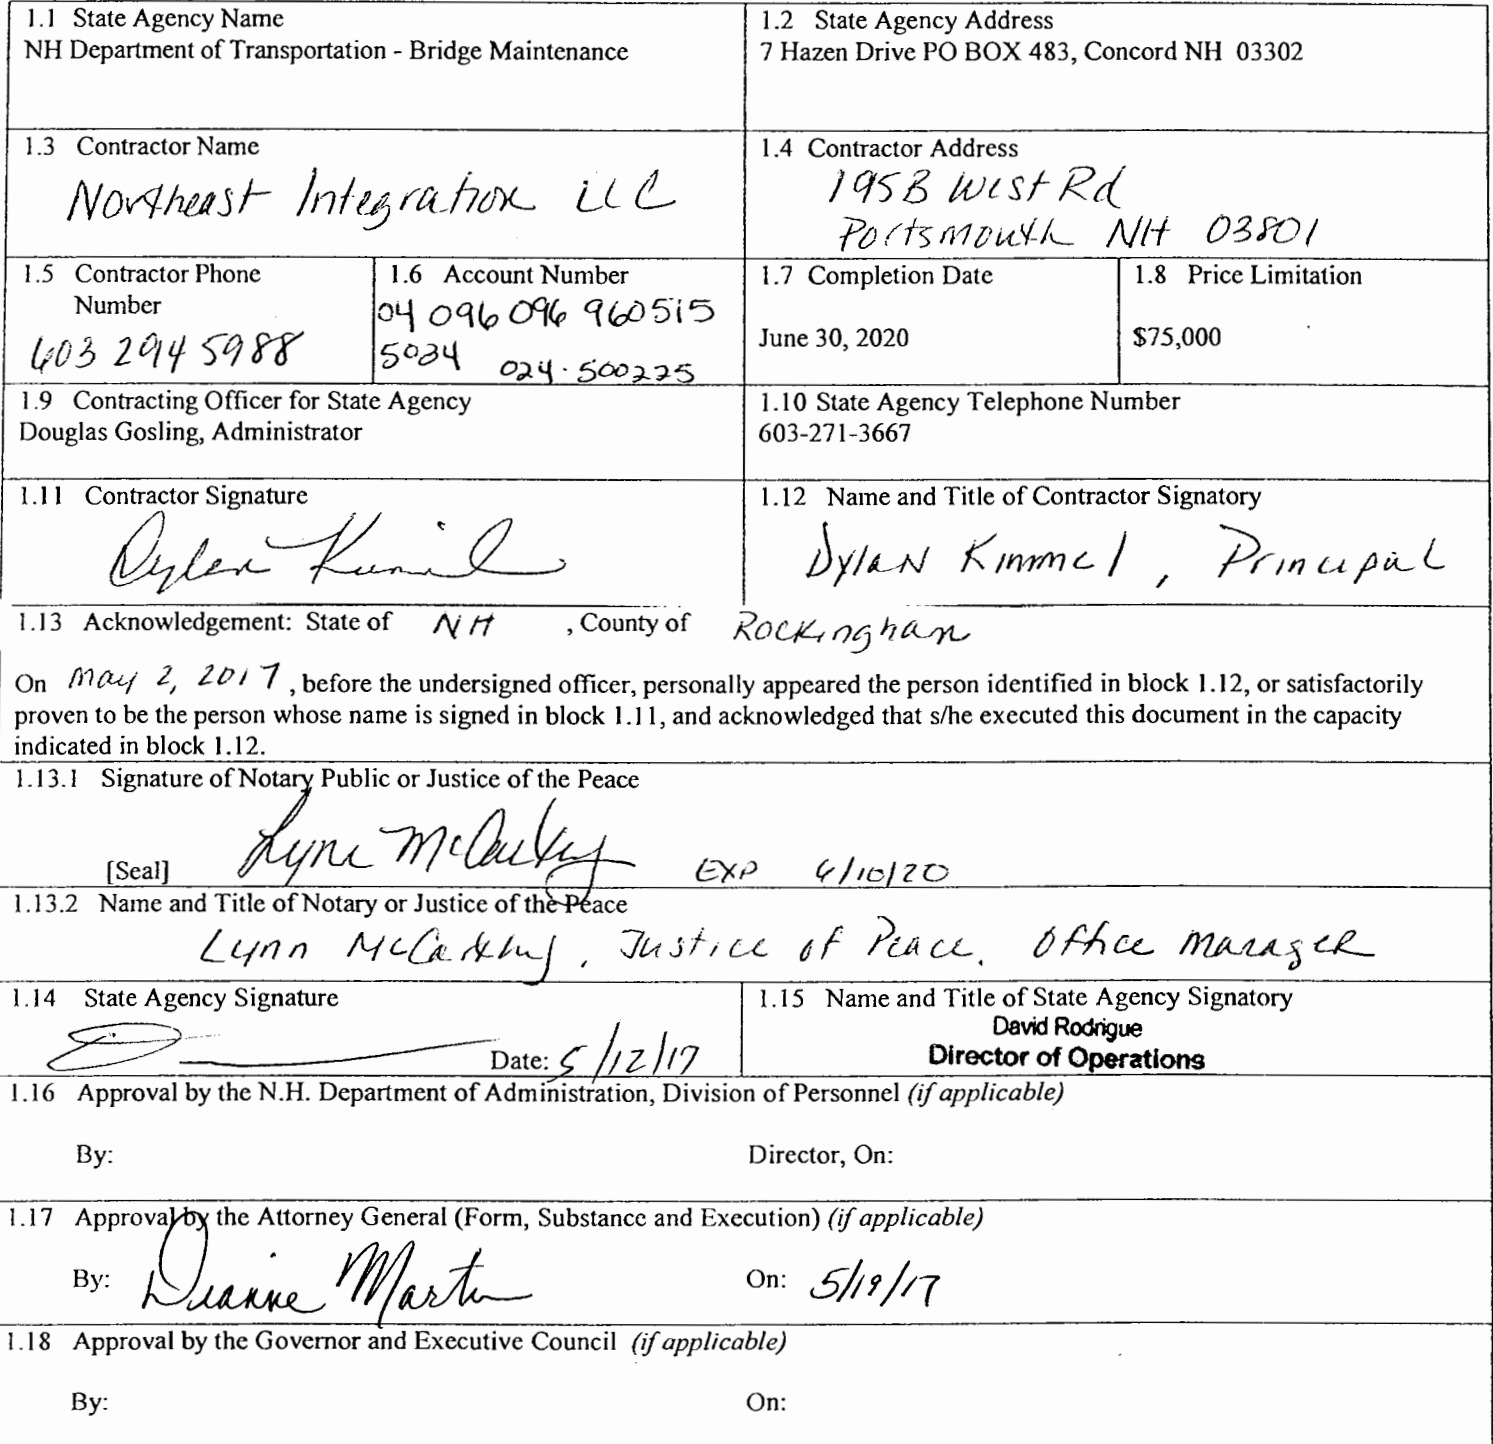 1.1 State Agency Name
NH Department of Transportation - Bridge Maintenance
1.2 State Agency Address
7 Hazen Drive PO BOX 483, Concord NH 03302
1.3 Contractor Name
Northeast Integration LLC
1.4 Contractor Address
195B West Rd
Portsmouth NH 03801
1.5 Contractor Phone
Number
603 294 5988
1.6 Account Number
04 096 096 960515
5034 024-500225
1.7 Completion Date
June 30, 2020
1.8 Price Limitation
$75,000
1.9 Contracting Officer for State Agency
Douglas Gosling, Administrator
1.10 State Agency Telephone Number
603-271-3667
1.11 Contractor Signature
Dylan
1.12 Name and Title of Contractor Signatory
Dylan Kimmel, Principal
1.13 Acknowledgement: State of NH , County of Rockingham
On May 2, 2017, before the undersigned officer, personally appeared the person identified in block 1.12, or satisfactorily
proven to be the person whose name is signed in block 1.11, and acknowledged that s/he executed this document in the capacity
indicated in block 1.12.
1.13.1 Signature of Notary Public or Justice of the Peace
Lynn McCarthy
[Seal] EXP /10/20
1.13.2 Name and Title of Notary or Justice of the Peace
Lynn McCarthy, Justice of Peace, Office Manager
1.14 State Agency Signature
Date: 5/12/17
1.15 Name and Title of State Agency Signatory
David Rodrigue
Director of Operations
1.16 Approval by the N.H. Department of Administration, Division of Personnel (if applicable)
By: Director, On:
1.17 Approval by the Attorney General (Form, Substance and Execution) (if applicable)
By: Dianne Martin On: 5/19/17
1.18 Approval by the Governor and Executive Council (if applicable)
By: On: